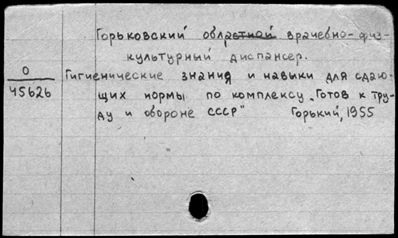 Горьковский областной врачебно-физ-
культурный диспансер.
О
45626
Гигиенические знания и навыки для сдаю-
щих нормы по комплексу „Готов к тру-
ду и обороне СССР" Горький, 1955